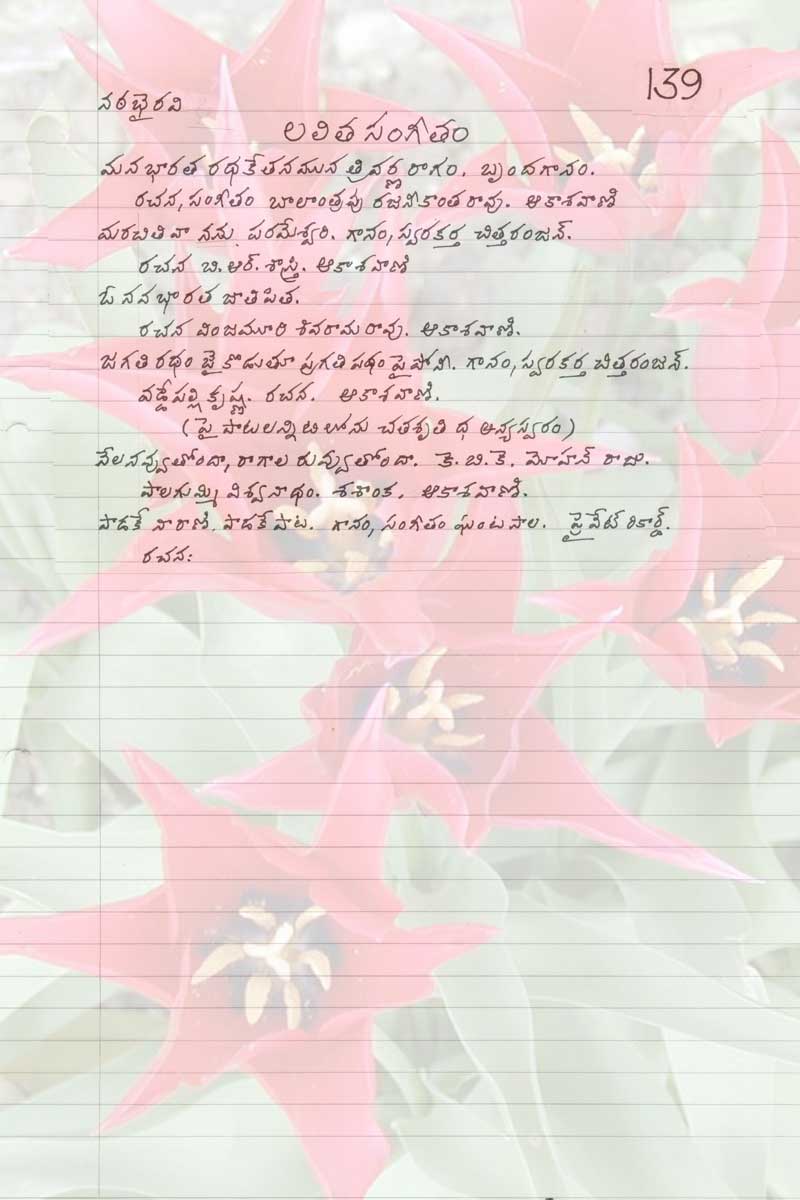 139
నఠభైరవి
లలిత సంగీతం
మన భారత రథకేతనమున త్రివర్ణ రాగం. బృందగానం.
రచన, సంగీతం బాలాంత్రపు రజనీకాంతరావు. ఆకాశవాణి
మరచితివా నను పరమేశ్వరి. గానం, స్వరకర్త చిత్తరంజన్.
రచన బి.ఆర్. శాస్త్రి. ఆకాశవాణి
ఓ నవభారత జాతిపిత.
రచన వింజమూరి శివరామారావు. ఆకాశవాణి.
జగతి రథం జై కొడుతూ ప్రగతి పథం పై పోనీ. గానం, స్వరకర్త చిత్తరంజన్.
వడ్డేపల్లి కృష్ణ. రచన. ఆకాశవాణి.
(పై పాటలన్నిటిలోను చతశృతి ధ అన్యస్వరం)
నేలనవ్వుతోందా, రాగాల రువ్వుతోందా. కె. బి. కె. మోహన్ రాజు.
పాలగుమ్మి విశ్వనాథం. శశాంక. ఆకాశవాణి.
పాడకే నారాణి పాడకే పాట. గానం, సంగీతం ఘంటసాల. ప్రైవేట్ రికార్డ్.
రచన: